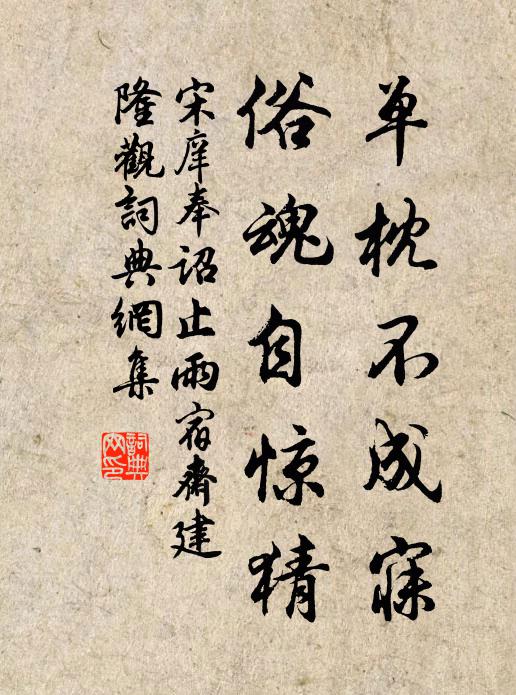 单枕不成寐
俗魂自惊猜
宋庠奉詔止雨宿齋建
隆觀詞典網集
詞典
网印